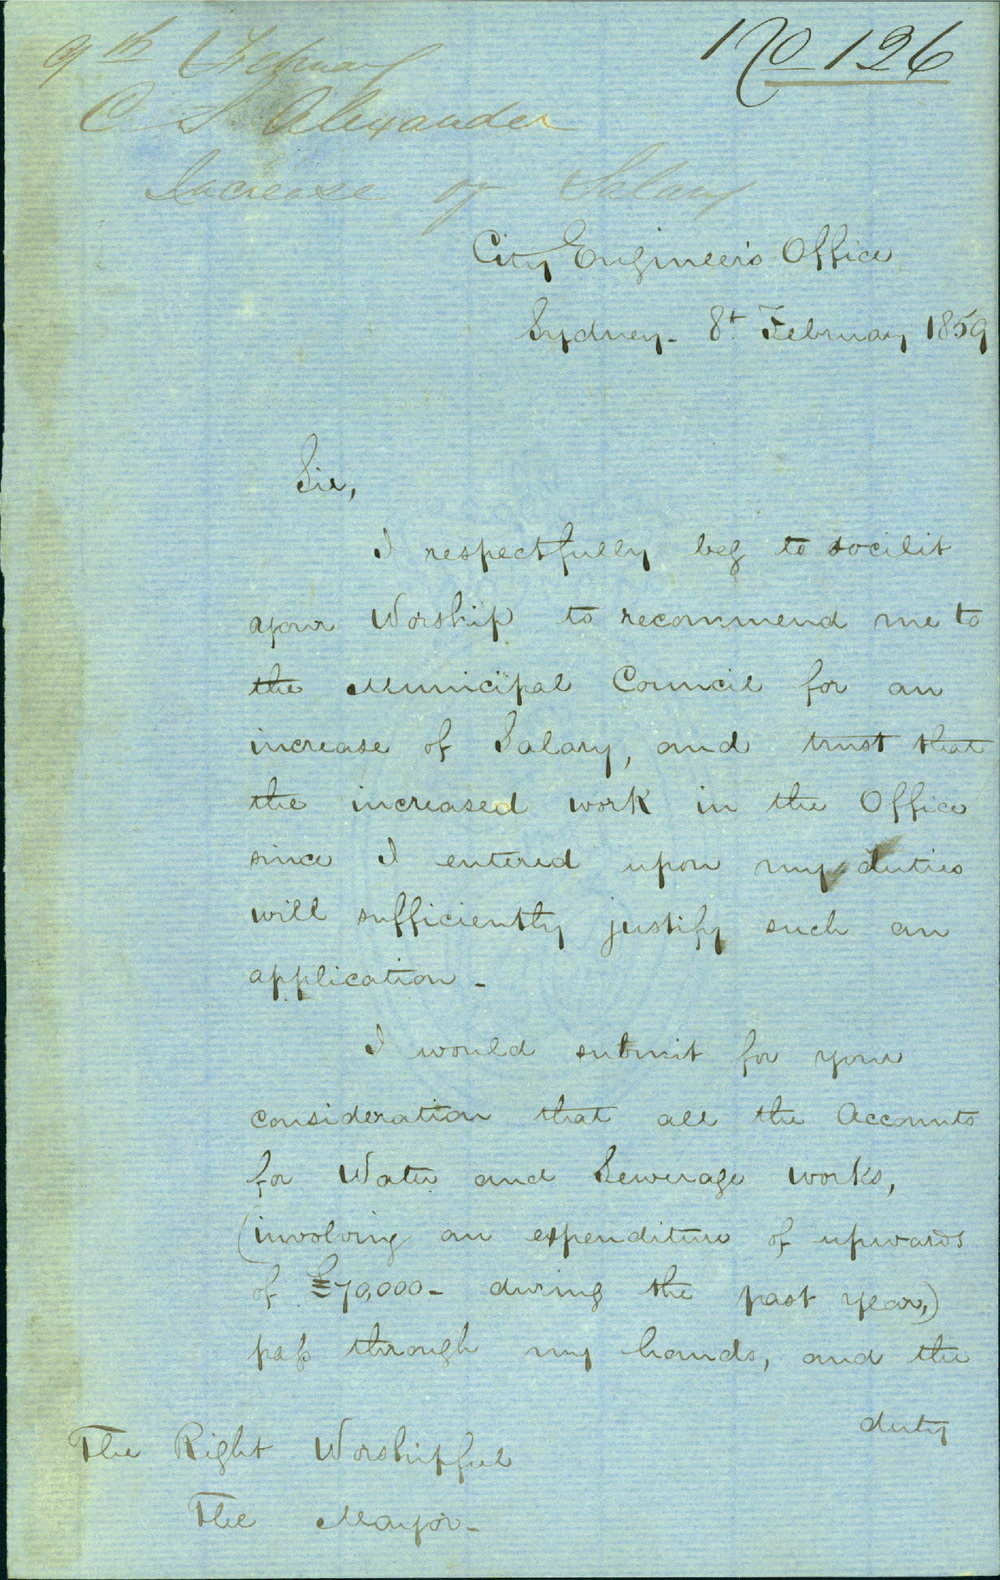 9th February
No 126
C S Alexander
Increase of Salary
City Engineer's Office
Sydney. 8t February 1859
Sir,
I respectfully beg to socilit
your Worship to recommend me to
the Municipal Council for an
increase of Salary, and trust that
the increased work in the Office
since I entered upon my duties
will sufficiently justify such an
application -
I would submit for your
consideration that all the Accounts
for Water and Sewerage works,
(involving an expenditure of upwards
of £70,000 - during the past year,)
pass through my hands, and the
duty
The Right Worshipful
The Mayor -